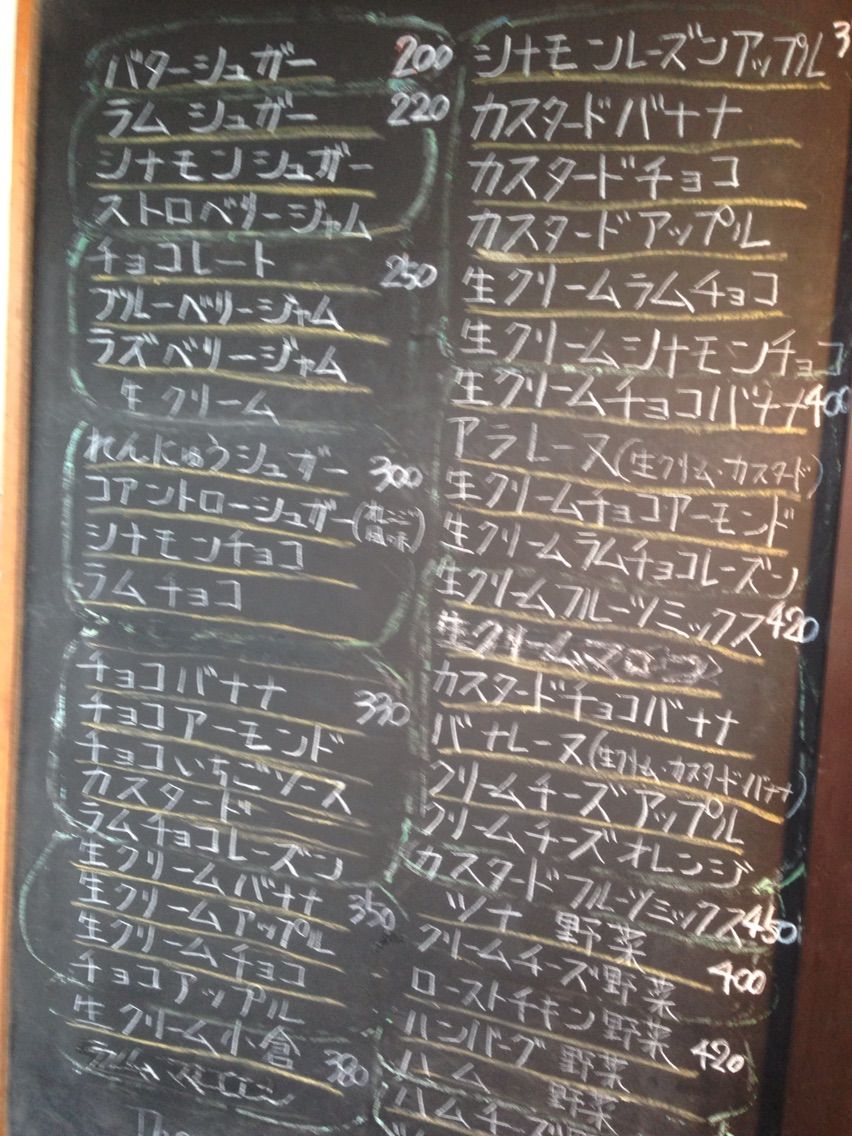 バターシュガー 200
ラム シュガー 220
シナモンシュガー
ストロベリージャム
チョコレート 250
ブルーベリージャム
ラズベリージャム
生クリーム
れんにゅうシュガー 300
コアントローシュガー(オレンジ風味)
シナモンチョコ
ラムチョコ
チョコバナナ 330
チョコアーモンド
チョコいちごソース
カスタード
ラムチョコレーズン
生クリームバナナ 350
生クリームアップル
生クリームチョコ
チョコアップル
生クリーム小倉 380
シナモンレーズンアップル 3
カスタードバナナ
カスタードチョコ
カスタードアップル
生クリームラムチョコ
生クリームシナモンチョコ
生クリームチョコバナナ 400
アラレーヌ(生クリーム・カスタード)
生クリームチョコアーモンド
生クリームラムチョコレーズン
生クリームフルーツミックス 420
生クリームマロン
カスタードチョコバナナ
バナレーヌ(生クリーム・カスタード・バナナ)
クリームチーズアップル
クリームチーズオレンジ
カスタードフルーツミックス 450
ツナ 野菜
クリームチーズ野菜 400
ローストチキン野菜
ハンバーグ 野菜 420
ハム 野菜
ハムチーズ野菜